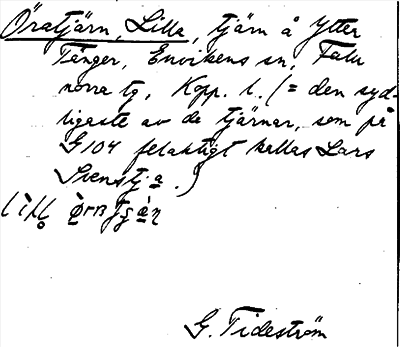 Öratjärn, Lilla, tjärn å Ytter
Tänger, Envikens sn, Falu
norra tg, Kopp. l. (= den syd-
ligaste av de tjärnar, som på
G 104 felaktigt kallas Lars
Svenstja.)
G. Tideström